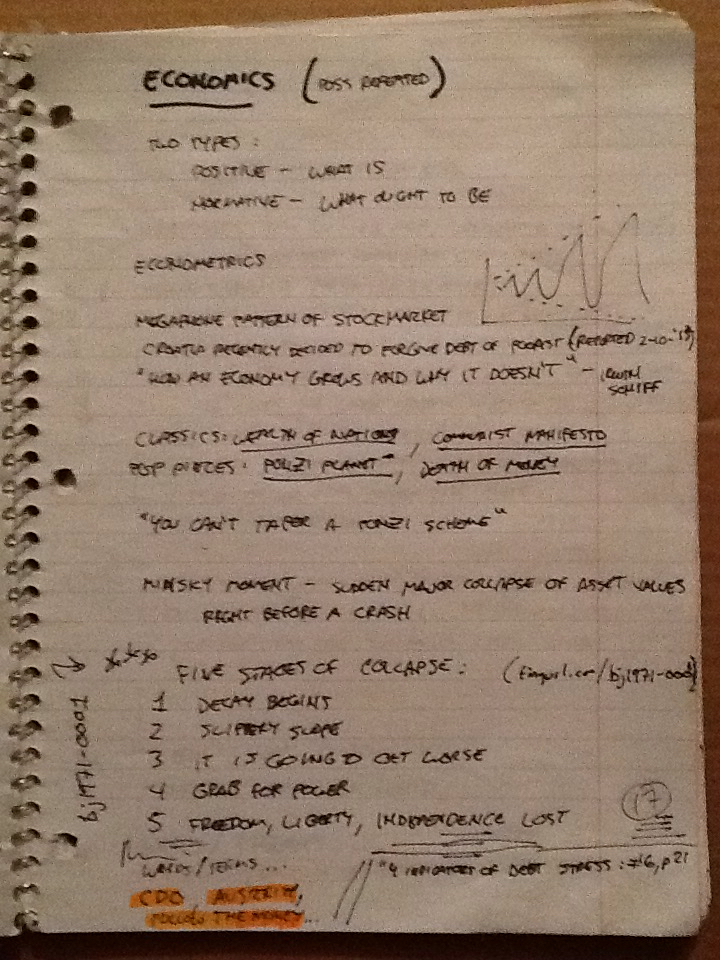 ECONOMICS (POSS REPEATED)
TWO TYPES:
POSITIVE - WHAT IS
NORMATIVE - WHAT OUGHT TO BE
ECONOMETRICS
MEGAPHONE PATTERN OF STOCKMARKET
CROATIA RECENTLY DECIDED TO FORGIVE DEBT OF POOREST (REPORTED 2-10-'15)
"HOW AN ECONOMY GROWS AND WHY IT DOESN'T" - IRWIN
SCHIFF
CLASSICS: WEALTH OF NATIONS, COMMUNIST MANIFESTO
POP PIECES: PONZI PLANET, DEATH OF MONEY
"YOU CAN'T TAPER A PONZI SCHEME"
MINSKY MOMENT - SUDDEN MAJOR COLLAPSE OF ASSET VALUES
RIGHT BEFORE A CRASH
FIVE STAGES OF COLLAPSE: (tinyurl.com/bj1971-0001)
1 DECAY BEGINS
2 SLIPPERY SLOPE
3 IT IS GOING TO GET WORSE
4 GRAB FOR POWER
5 FREEDOM, LIBERTY, INDEPENDENCE LOST
bj1971-0001
17
WORDS/TERMS...
"4 INDICATORS OF DEBT STRESS: #6, p21
CDO, AUSTERITY,
FOLLOW THE MONEY...